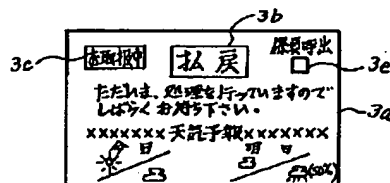 3b
3c お取扱中 払戻 係員呼出 3e
ただいま、処理を行っていますので
しばらくお待ち下さい。
3a
×××××××天気予報×××××××
日 明日
(50%)